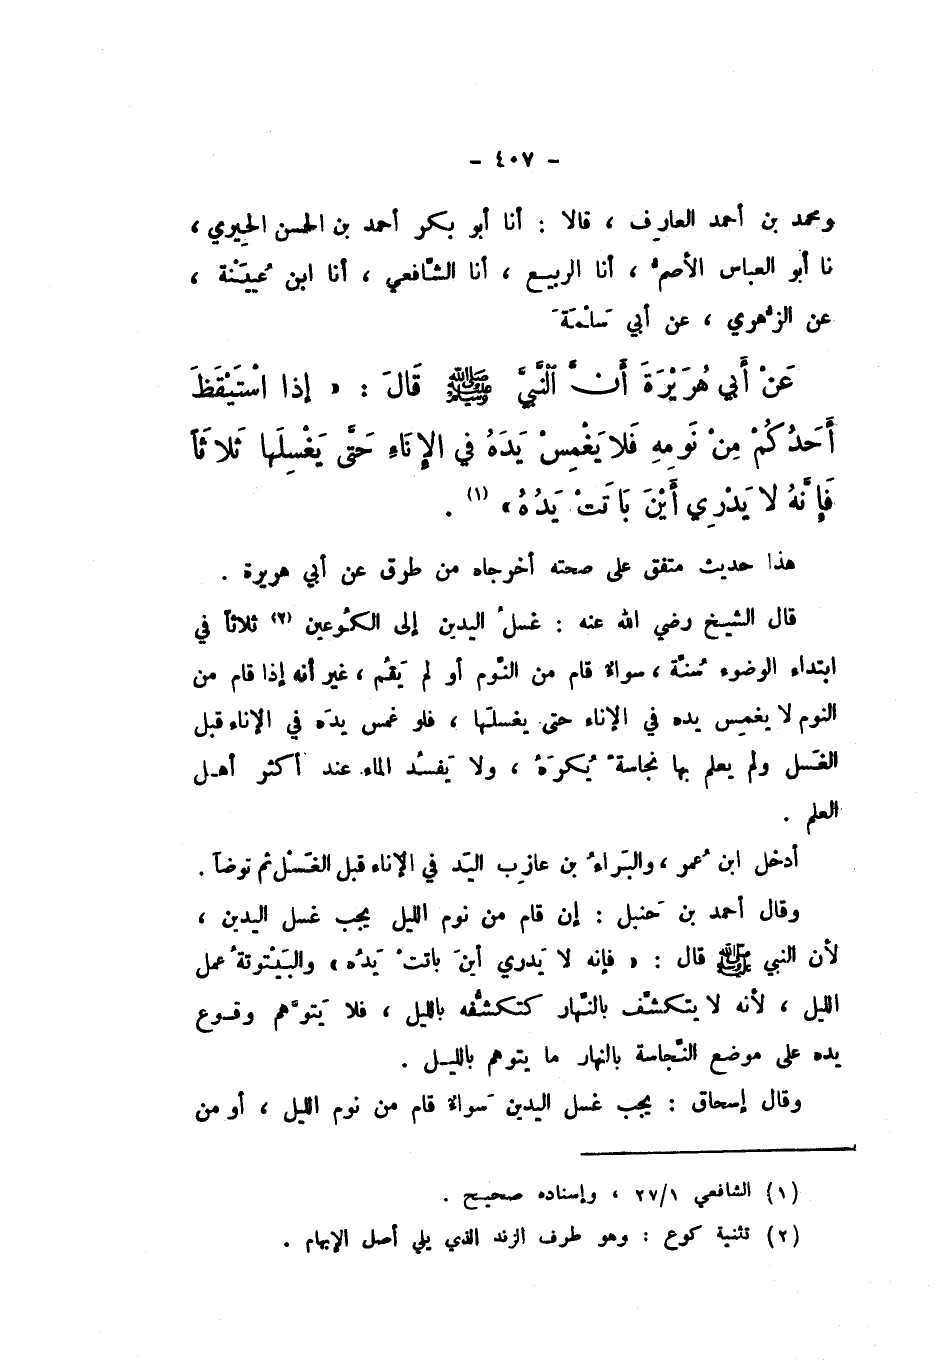 - ٤٠٧ -
ومحمد بن أحمد العارف ، قالا : أنا أبو بكر أحمد بن الحسن الحِيري ،
نا أبو العباس الأصمُّ ، أنا الربيع ، أنا الشَّافعي ، أنا ابن عُيَيْنة ،
عن الزُّهوي ، عن أبي سَلْمَةَ
عَنْ أَبي هُرَيْرَةَ أَنَّ النَّبيَّ ﷺ قَالَ : « إِذا اسْتَيْقَظَ
أَحَدُكُمْ مِنْ نَومِهِ فَلا يَغْمِسْ يَدَهُ في الإِنَاءِ حَتَّى يَغْسِلَها ثَلاثَاً
فَإِنَّهُ لا يَدْرِي أَيْنَ بَاتَتْ يَدُهُ » (١) .
هذا حديث متفق على صحته أخرجاه من طرق عن أبي هريرة .
قال الشيخ رضي الله عنه : غسلُ اليدين إلى الكُوعين (٢) ثلاثاً في
ابتداء الوضوء سُنَّة ، سواءٌ قام من النَّوم أو لم يَقُم ، غير أنه إذا قام من
النوم لا يغمِس يده في الإناء حتى يغسلَها ، فلو غمس يدَه في الإناء قبل
الغَسل ولم يعلم بها نجاسةٌ يُكرَهُ ، ولا يَفسُد الماء عند أكثر أهل
العلم .
أدخل ابن عُمو ، والبَراءُ بن عازِب اليَد في الإناء قبل الغَسْل ثم توضأ .
وقال أحمد بن حَنبل : إن قام من نوم الليل يجب غسل اليدين ،
لأن النبي ﷺ قال : « فإنه لا يَدري أينَ باتتْ يَدُه » والبَيْتوتةُ عمل
الليل ، لأنه لا يتكشَّف بالنَّهار كتكشُّفه بالليل ، فلا يَتوهَّم وقوع
يده على موضع النَّجاسة بالنهار ما يتوهم بالليل .
وقال إسحاق : يجب غسل اليدين سَواءٌ قام من نوم الليل ، أو من
(١) الشافعي ٢٧/١ ، وإسناده صحيح .
(٢) تثنية كوع : وهو طرف الزند الذي يلي أصل الإبهام .